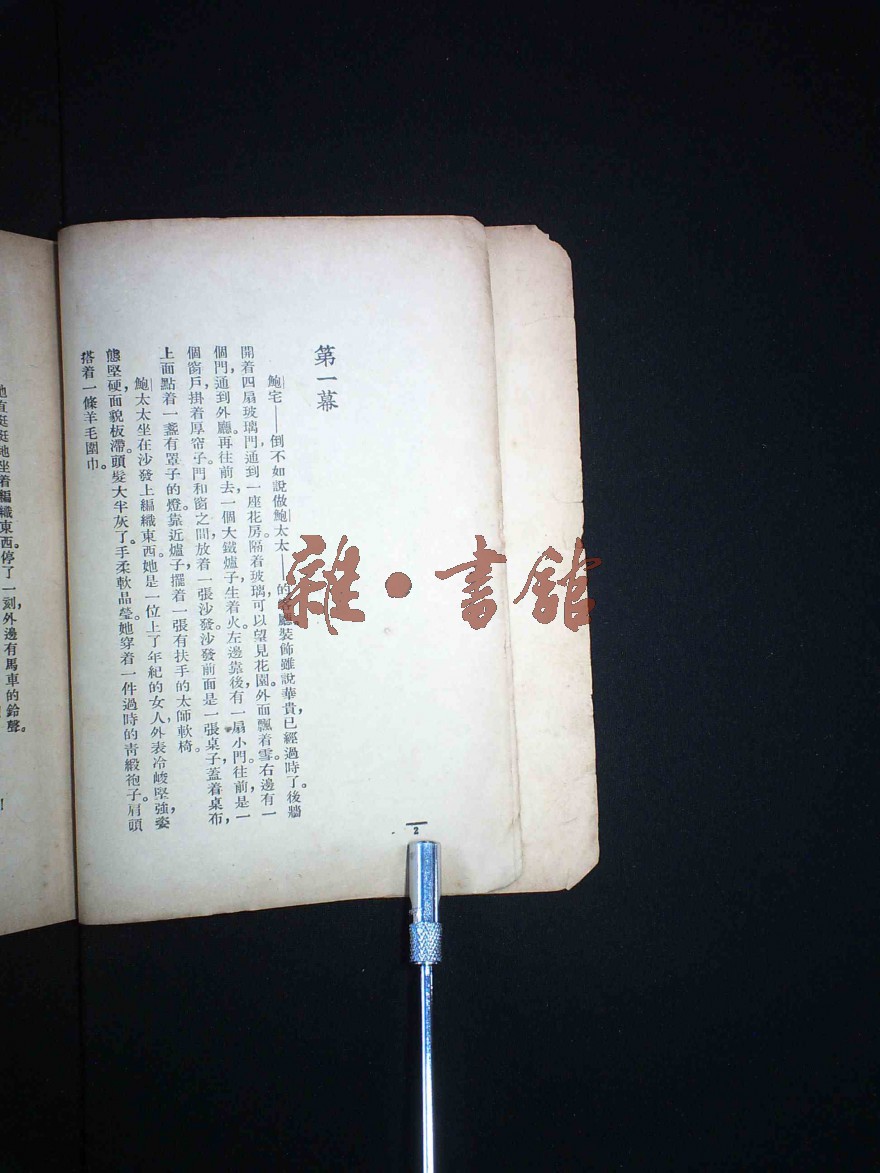 第一幕
鮑宅——倒不如說做鮑太太——的客廳。裝飾雖說華貴，已經過時了。後牆
開着四扇玻璃門，通到一座花房。隔着玻璃，可以望見花園。外面飄着雪。右邊有一
個門，通到外廳。再往前去一個大鐵爐子，生着火。左邊靠後有一扇小門。往前是一
個窗戶，掛着厚帘子。門和窗之間放着一張沙發。沙發前面是一張桌子，蓋着桌布，
上面點着一盞有罩子的燈。靠近爐子，擺着一張有扶手的太師軟椅。
鮑太太坐在沙發上編織東西。她是一位上了年紀的女人，外表冷峻堅強，姿
態堅硬，面貌板滯。頭髮大半灰了。手柔軟晶瑩。她穿着一件過時的青緞袍子。肩頭
搭着一條羊毛圍巾。
2
地直挺挺地坐着編織東西。停了一刻，外邊有馬車的鈴聲。
雜·書館